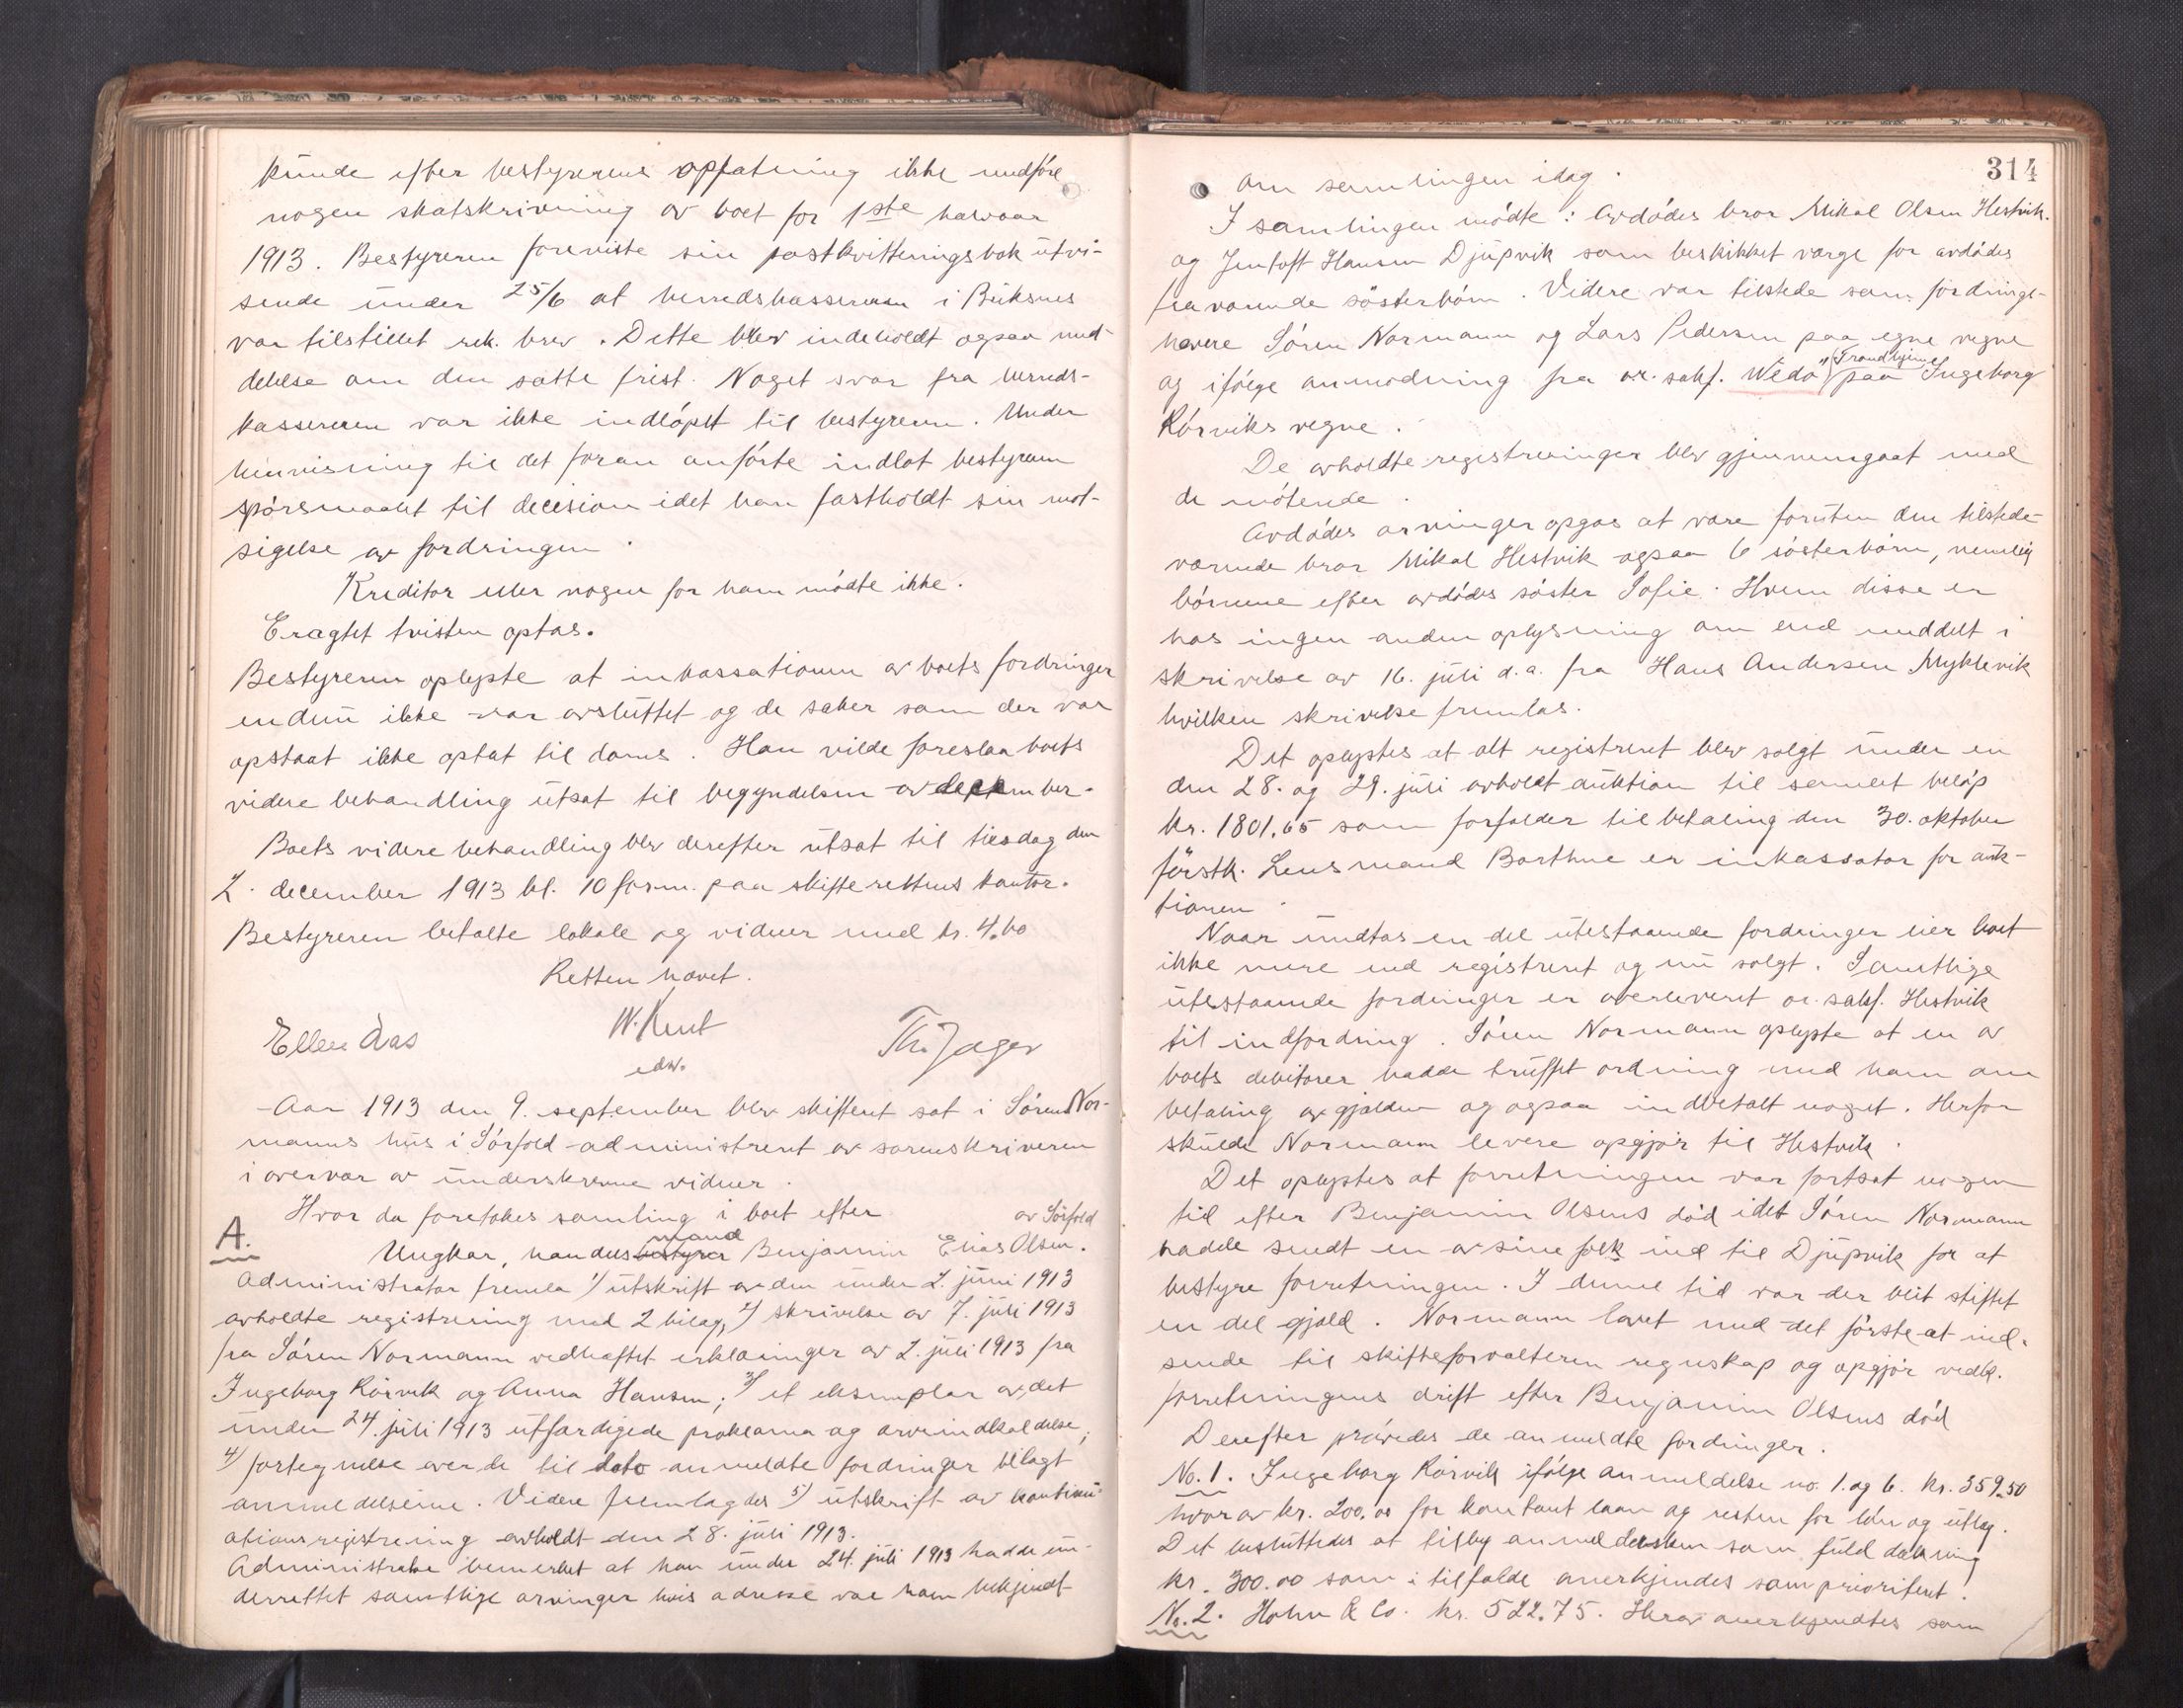 kunde efter bestyrerens opfatning ikke medføre
nogen skatskrivning av boet for 1ste halvaar
1913. Bestyreren foreviste sin postkvitteringsbok utvi-
sende under 25/6 at herredskassereren i Buksnes
var tilstillet rek. brev. Dette blev indeholdt ogsaa med-
delelse om den satte frist. Noget svar fra herreds-
kassereren var ikke indløpet til bestyreren. Under
henvisning til det foran anførte indlot bestyreren
spørsmaalet til decision idet han fastholdt sin mot-
sigelse av fordringen.
Kreditor eller nogen for ham mødte ikke.
Eragtet tvisten optas.
Bestyreren oplyste at inkassationen av boets fordringer
endnu ikke var avsluttet og de saker som der var
opstaat ikke optat til doms. Han vilde foreslaa boets
videre behandling utsat til begyndelsen av december.
Boets videre behandling blev derefter utsat til tirsdag den
2. december 1913 kl. 10 form. paa skifterettens kontor.
Bestyreren betalte lokale og vidner med kr. 4.60
Retten hævet.
Ellen Aas W. Kent Th. Jager
edsv.
Aar 1913 den 9. september blev skifteret sat i Søren Nor-
manns hus i Sørfold administreret av sorenskriveren
i overvær av underskrevne vidner.
Hvor da foretokes samling i boet efter
av Sørfold
A.
mand
Ungkar, handelsbestyrer Benjamin Elias Olsen.
Administrator fremla 1) utskrift av den under 2. juni 1913
avholdte registrering med 2 bilag, 2) skrivelse av 7. juli 1913
fra Søren Normann vedhæftet erklæringer av 2. juli 1913 fra
Ingeborg Rørvik og Anna Hansen; 3) et eksemplar av det
under 24. juli 1913 utfærdigede proklama og arveindkaldelse,
4) fortegnelse over de til dato anmeldte fordringer bilagt
anmeldelserne. Videre fremlagdes 5) utskrift av kontinu-
ationsregistrering avholdt den 28. juli 1913.
Administrator bemerket at han under 24. juli 1913 hadde un-
derrettet samtlige arvinger hvis adresse var ham bekjendt
314
om samlingen idag.
I samlingen mødte: Avdødes bror Mikal Olsen Hestvik.
og Jentoft Hansen Djupvik som beskikket værge for avdødes
fraværende søsterbørn. Videre var tilstede som fordrings-
havere Søren Normann og Lars Pedersen paa egne vegne
Trondhjem
og ifølge anmodning fra or. sakf. Wedø paa Ingeborg
Rørviks vegne.
De avholdte registreringer blev gjennemgaat med
de møtende.
Avdødes arvinger opgas at være foruten den tilstede-
værende bror Mikal Hestvik ogsaa 6 søsterbørn, nemlig
børnene efter avdødes søster Sofie. Hvem disse er
has ingen anden oplysning om end meddelt i
skrivelse av 16. juli d.a. fra Hans Andersen Myklevik
hvilken skrivelse fremlas.
Det oplystes at alt registreret blev solgt under en
den 28. og 29. juli avholdt auktion til samlet beløp
kr. 1801,65 som forfalder til betaling den 30. oktober
førstk. Lensmand Barthne er inkassator for auk-
tionen.
Naar undtas en del utestaaende fordringer eier boet
ikke mere end registreret og nu solgt. Samtlige
utestaaende fordringer er overleveret or. sakf. Hestvik
til indfordring. Søren Normann oplyste at en av
boets debitorer hadde truffet ordning med ham om
betaling av gjælden og ogsaa indbetalt noget. Herfor
skulde Normann levere opgjør til Hestvik.
Det oplystes at forretningen var fortsat nogen
tid efter Benjamin Olsens død idet Søren Normann
hadde sendt en av sine folk ind til Djupvik for at
bestyre forretningen. I denne tid var der blit stiftet
en del gjæld. Normann lovet med det første at ind-
sende til skifteforvalteren regnskap og opgjør vedk.
forretningens drift efter Benjamin Olsens død
Derefter prøvedes de anmeldte fordringer.
No. 1. Ingeborg Rørvik ifølge anmeldelse no. 1. og 6. kr. 359.50
hvorav kr. 200.00 for kontant laan og resten for løn og utlæg.
Det besluttedes at tilby anmeldersken som fuld dækning
kr. 300.00 som i tilfælde anerkjendes som prioritert.
No. 2. Hohn & Co. kr. 522.75. Herav anerkjendtes som